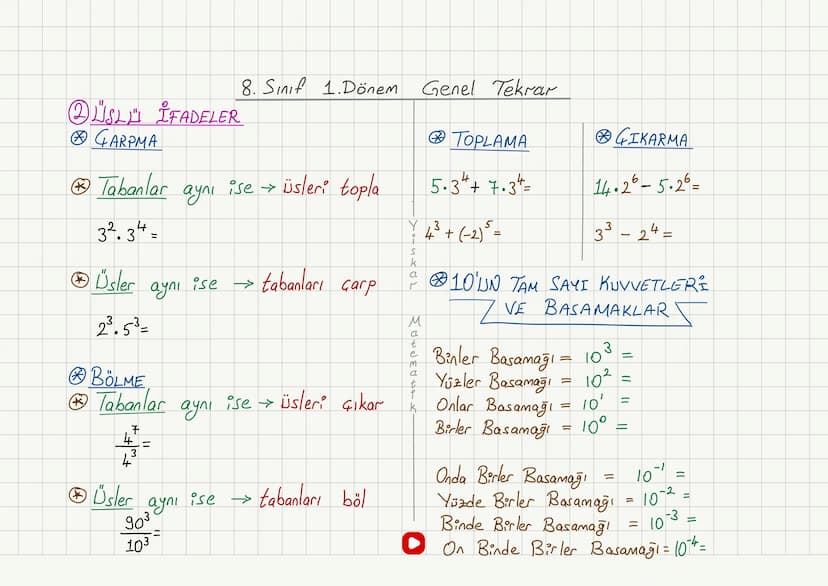 8. Sınıf 1.Dönem Genel Tekrar
② ÜSLÜ İFADELER
ÇARPMA
Tabanlar aynı ise → üsleri topla
3². 3⁴ =
Üsler aynı ise → tabanları çarp
2³. 5³=
BÖLME
Tabanlar aynı ise → üsleri çıkar
4⁷/4³ =
Üsler aynı ise → tabanları böl
90³/10³ =
Yiskar Matematik
TOPLAMA
5.3⁴ + 7.3⁴=
4³ + (-2)⁵ =
ÇIKARMA
14.2⁶ - 5.2⁶=
3³ - 2⁴ =
10'UN TAM SAYI KUVVETLERİ
VE BASAMAKLAR
Binler Basamağı = 10³ =
Yüzler Basamağı = 10² =
Onlar Basamağı = 10¹ =
Birler Basamağı = 10⁰ =
Onda Birler Basamağı = 10⁻¹ =
Yüzde Birler Basamağı = 10⁻² =
Binde Birler Basamağı = 10⁻³ =
On Binde Birler Basamağı = 10⁻⁴=